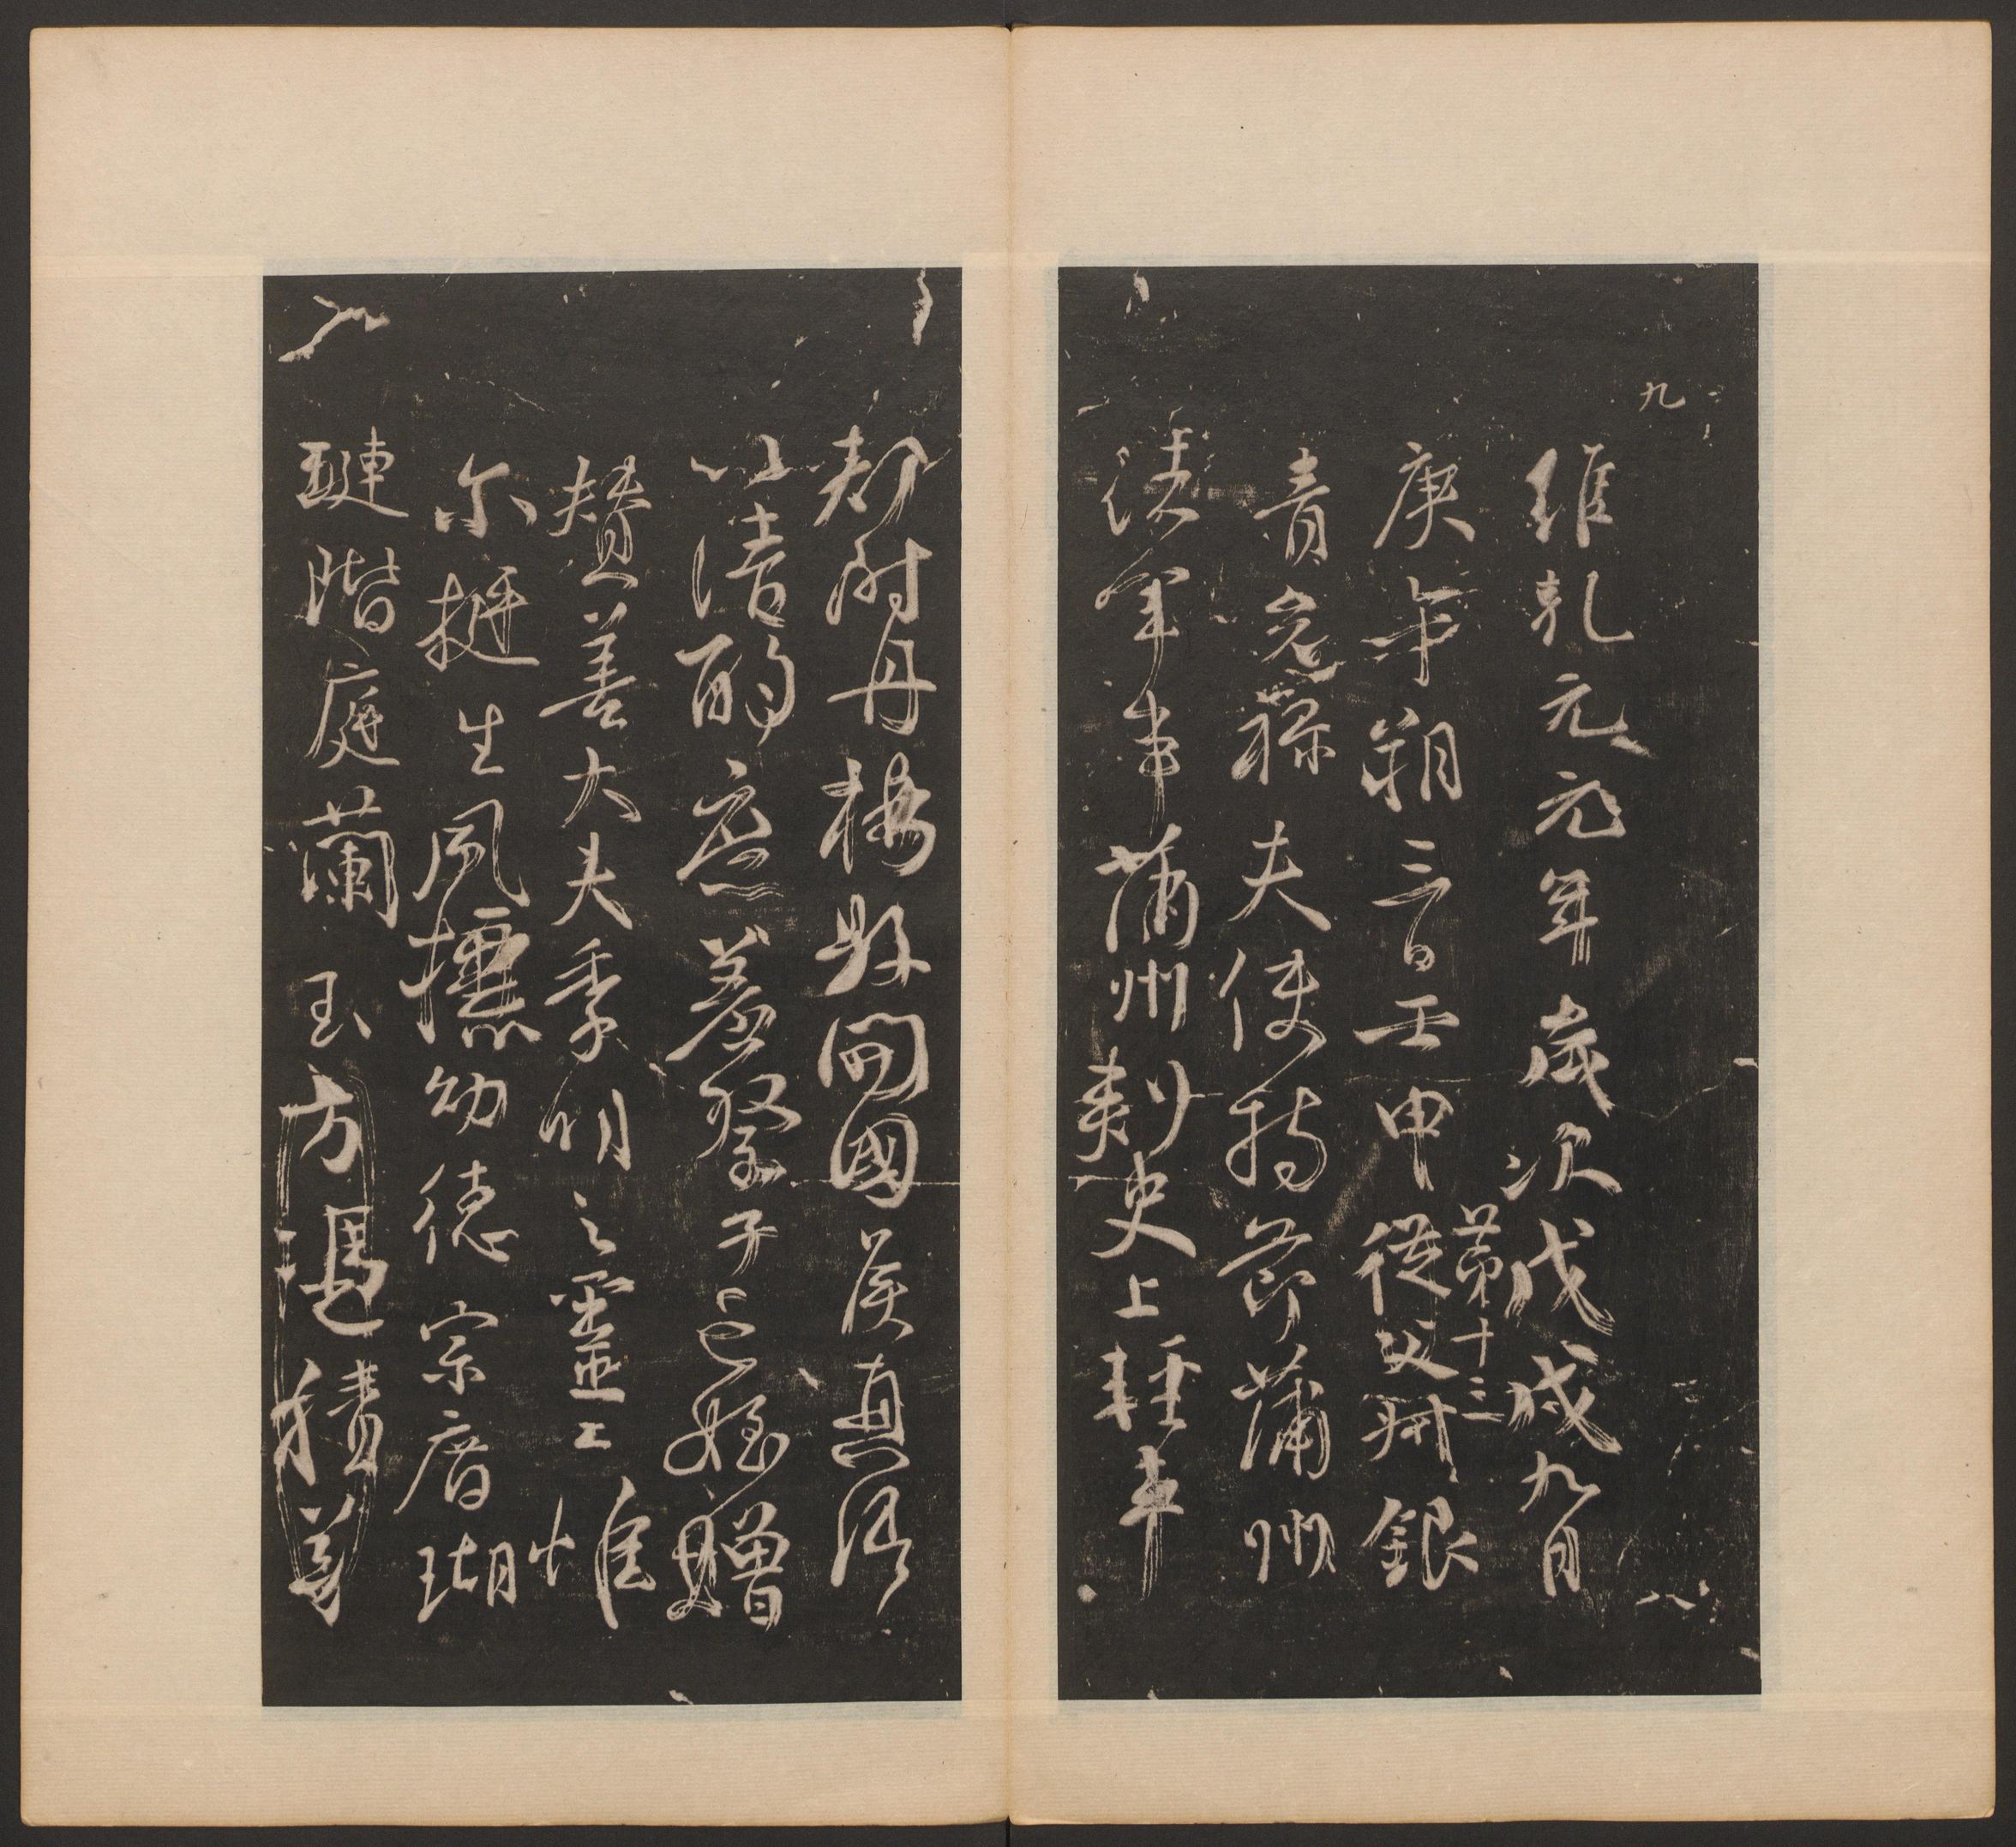 九
維乾元元年歲次戊戌九月
庚午朔三日壬申從父
第十三
銀
青光祿夫使持節蒲州
諸軍事蒲州刺史上輕車
都尉丹楊縣開國侯真卿
以清酌庶羞祭于亡姪贈
贊善大夫季明之靈曰惟
尔挺生夙標幼德宗廟瑚
璉階庭蘭玉方憑積善
八